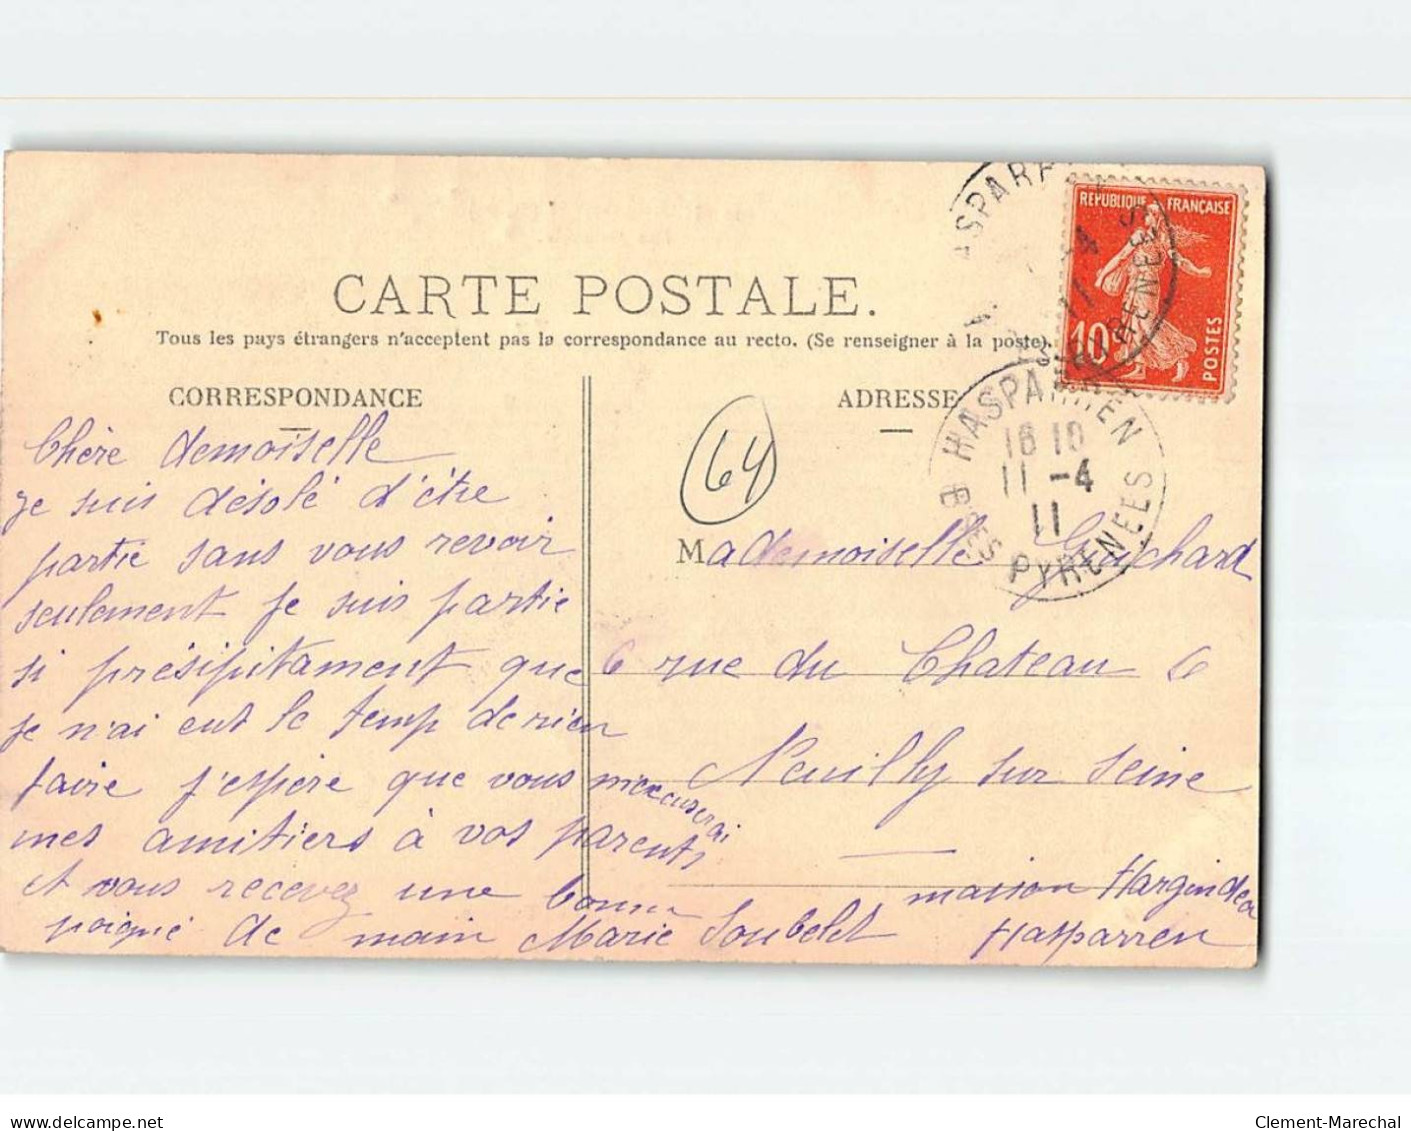 HASPARREN
PYRENEES
REPUBLIQUE FRANÇAISE
10
POSTES
CARTE POSTALE.
Tous les pays étrangers n'acceptent pas la correspondance au recto. (Se renseigner à la poste).
CORRESPONDANCE
ADRESSE
64
HASPARREN
16 10
11 -4
11
BSES PYRENEES
Chère demoiselle
je suis désolé d'être
partie sans vous revoir
seulement je suis partie
si présipitament que
je n'ai eut le temp de rien
faire j'espère que vous m'excuserai
mes amitiers à vos parents
et vous recevez une bonne
poigné de main Marie Soubelet
Mademoiselle Guichard
6 rue du Chateau 6
Neuilly sur Seine
maison Harginidea
Hasparren
www.delcampe.net
Clement-Marechal